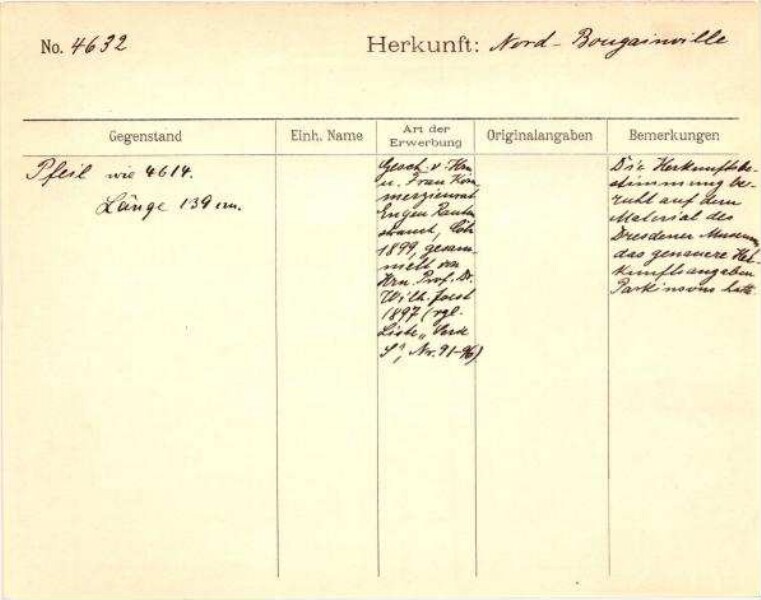 No. 4632 Herkunft: Nord-Bougainville
Gegenstand
Einh. Name
Art der
Erwerbung
Originalangaben
Bemerkungen
Pfeil wie 4614.
Länge 139 cm.
Gesch. v. Hrn
u. Frau Kom-
merzienrat
Eugen Rauten
strauch, Cöln
1899, gesam-
melt von
Hrn. Prof. Dr.
Wilh. Joest
1897 (vgl.
Liste
S", Nr. 91-96)
Die Herkunftsbe-
stimmung be-
ruht auf dem
Material des
Dresdener Museum,
das genauere Her-
kunftsangaben
Parkinsons hatte.